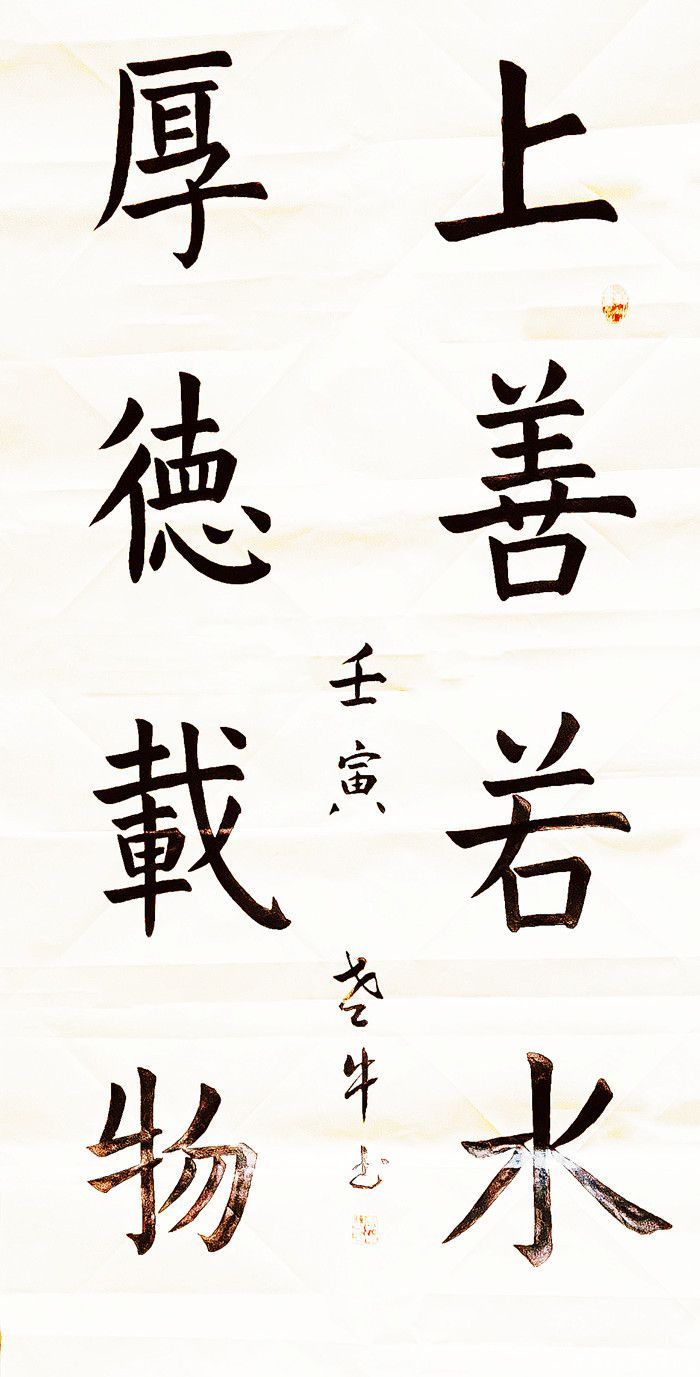 上善若水
厚德載物
壬寅
牛书